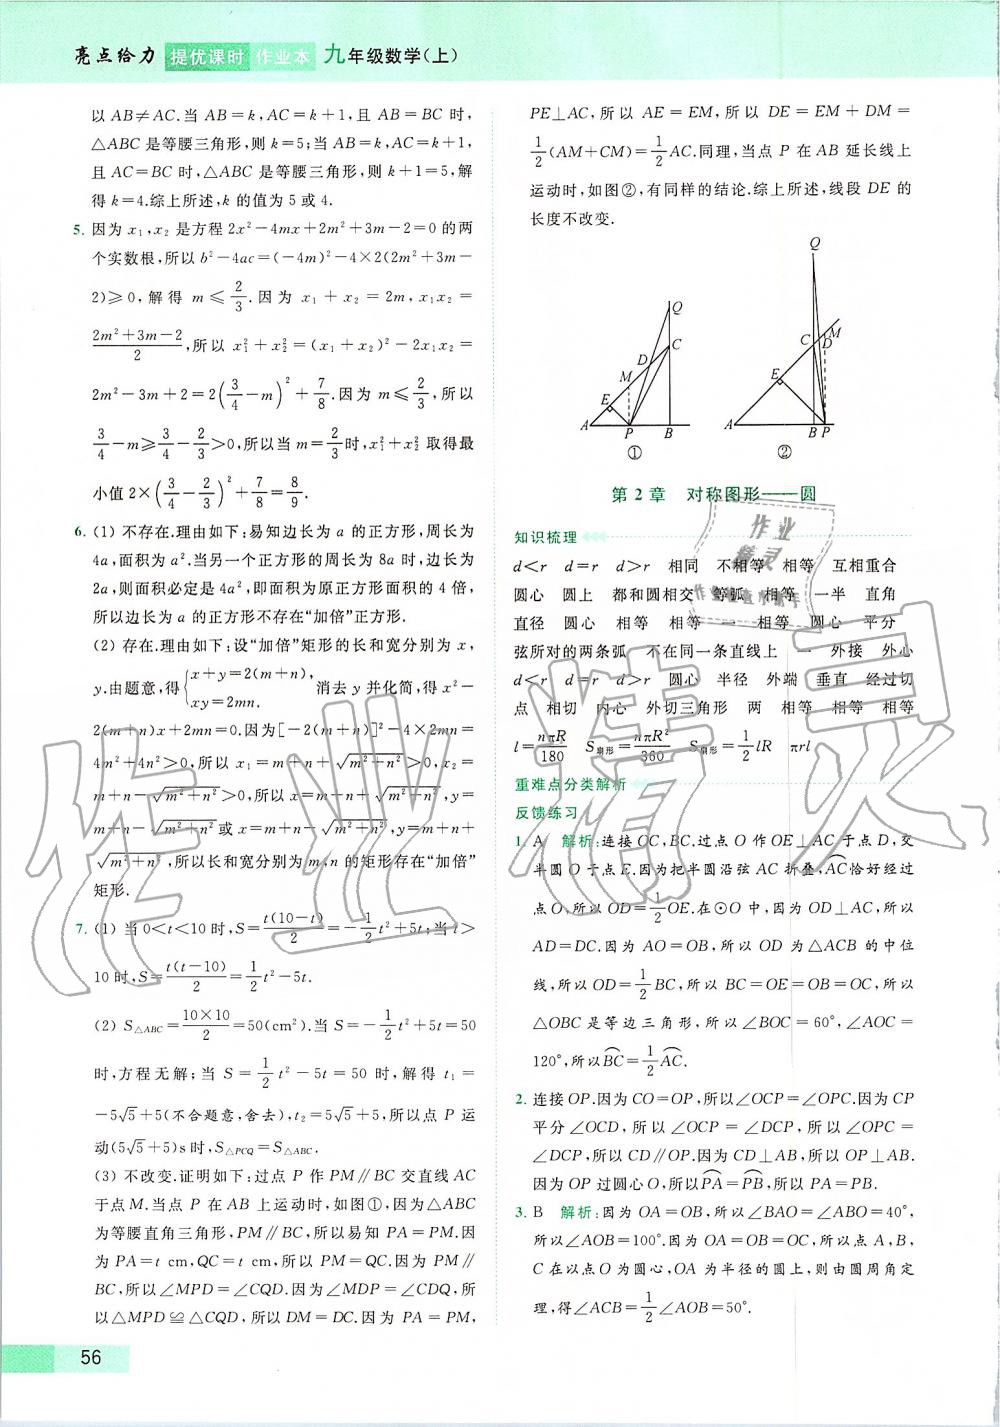 亮点给力 提优课时 作业本 九年级数学(上)
以 AB≠AC.当 AB=k,AC=k+1,且 AB=BC 时,
△ABC 是等腰三角形,则 k=5;当 AB=k,AC=k+1,
且 AC=BC 时,△ABC 是等腰三角形,则 k+1=5,解
得 k=4.综上所述,k 的值为 5 或 4.
5. 因为 x₁,x₂ 是方程 2x²-4mx+2m²+3m-2=0 的两
个实数根,所以 b²-4ac=(-4m)²-4×2(2m²+3m-
2)≥0,解得 m≤2/3.因为 x₁+x₂=2m,x₁x₂=
(2m²+3m-2)/2,所以 x₁²+x₂²=(x₁+x₂)²-2x₁x₂=
2m²-3m+2=2(3/4-m)²+7/8.因为 m≤2/3,所以
3/4-m≥3/4-2/3>0,所以当 m=2/3时,x₁²+x₂² 取得最
小值 2×(3/4-2/3)²+7/8=8/9.
6. (1) 不存在.理由如下:易知边长为 a 的正方形,周长为
4a,面积为 a².当另一个正方形的周长为 8a 时,边长为
2a,则面积必定是 4a²,即面积为原正方形面积的 4 倍,
所以边长为 a 的正方形不存在“加倍”正方形.
(2) 存在.理由如下:设“加倍”矩形的长和宽分别为 x,
y.由题意,得{x+y=2(m+n), xy=2mn. 消去 y 并化简,得 x²-
2(m+n)x+2mn=0.因为[-2(m+n)]²-4×2mn=
4m²+4n²>0,所以 x₁=m+n+√(m²+n²)>0,x₂=
m+n-√(m²+n²)>0,所以 x=m+n+√(m²+n²),y=
m+n-√(m²+n²)或 x=m+n-√(m²+n²),y=m+n+
√(m²+n²),所以长和宽分别为 m,n 的矩形存在“加倍”
矩形.
7. (1) 当 0<t<10 时,S=t(10-t)/2=-1/2t²+5t;当 t>
10 时,S=t(t-10)/2=1/2t²-5t.
(2) S△ABC=10×10/2=50(cm²).当 S=-1/2t²+5t=50
时,方程无解;当 S=1/2t²-5t=50 时,解得 t₁=
-5√5+5(不合题意,舍去),t₂=5√5+5,所以点 P 运
动(5√5+5)s 时,S△PCQ=S△ABC.
(3) 不改变.证明如下:过点 P 作 PM∥BC 交直线 AC
于点 M.当点 P 在 AB 上运动时,如图①,因为△ABC
为等腰直角三角形,PM∥BC,所以易知 PA=PM.因
为 PA=t cm,QC=t cm,所以 PM=QC.因为 PM∥
BC,所以∠MPD=∠CQD.因为∠MDP=∠CDQ,所
以△MPD≌△CQD,所以 DM=DC.因为 PA=PM,
56
PE⊥AC,所以 AE=EM,所以 DE=EM+DM=
1/2(AM+CM)=1/2AC.同理,当点 P 在 AB 延长线上
运动时,如图②,有同样的结论.综上所述,线段 DE 的
长度不改变.
Q
D
C
M
E
A
P
B
①
Q
C
M
D
E
A
B
P
②
第 2 章 对称图形——圆
知识梳理
d<r d=r d>r 相同 不相等 相等 互相重合
圆心 圆上 都和圆相交 等弧 相等 一半 直角
直径 圆心 相等 相等 一 相等 圆心 平分
弦所对的两条弧 不在同一条直线上 一 外接 外心
d<r d=r d>r 圆心 半径 外端 垂直 经过切
点 相切 内心 外切三角形 两 相等 相等 相等
l=nπR/180 S扇形=nπR²/360 S扇形=1/2lR πrl
重难点分类解析
反馈练习
1. A 解析:连接 OC,BC.过点 O 作 OE⊥AC 于点 D,交
半圆 O 于点 E.因为把半圆沿弦 AC 折叠,⌒AC恰好经过
点 O,所以 OD=1/2OE.在⊙O 中,因为 OD⊥AC,所以
AD=DC.因为 AO=OB,所以 OD 为△ACB 的中位
线,所以 OD=1/2BC,所以 BC=OE=OB=OC,所以
△OBC 是等边三角形,所以∠BOC=60°,∠AOC=
120°,所以⌒BC=1/2⌒AC.
2. 连接 OP.因为 CO=OP,所以∠OCP=∠OPC.因为 CP
平分∠OCD,所以∠OCP=∠DCP,所以∠OPC=
∠DCP,所以 CD∥OP.因为 CD⊥AB,所以 OP⊥AB.
因为 OP 过圆心 O,所以⌒PA=⌒PB,所以 PA=PB.
3. B 解析:因为 OA=OB,所以∠BAO=∠ABO=40°,
所以∠AOB=100°.因为 OA=OB=OC,所以点 A,B,
C 在以点 O 为圆心,OA 为半径的圆上,则由圆周角定
理,得∠ACB=1/2∠AOB=50°.
作业精灵
作业
精灵